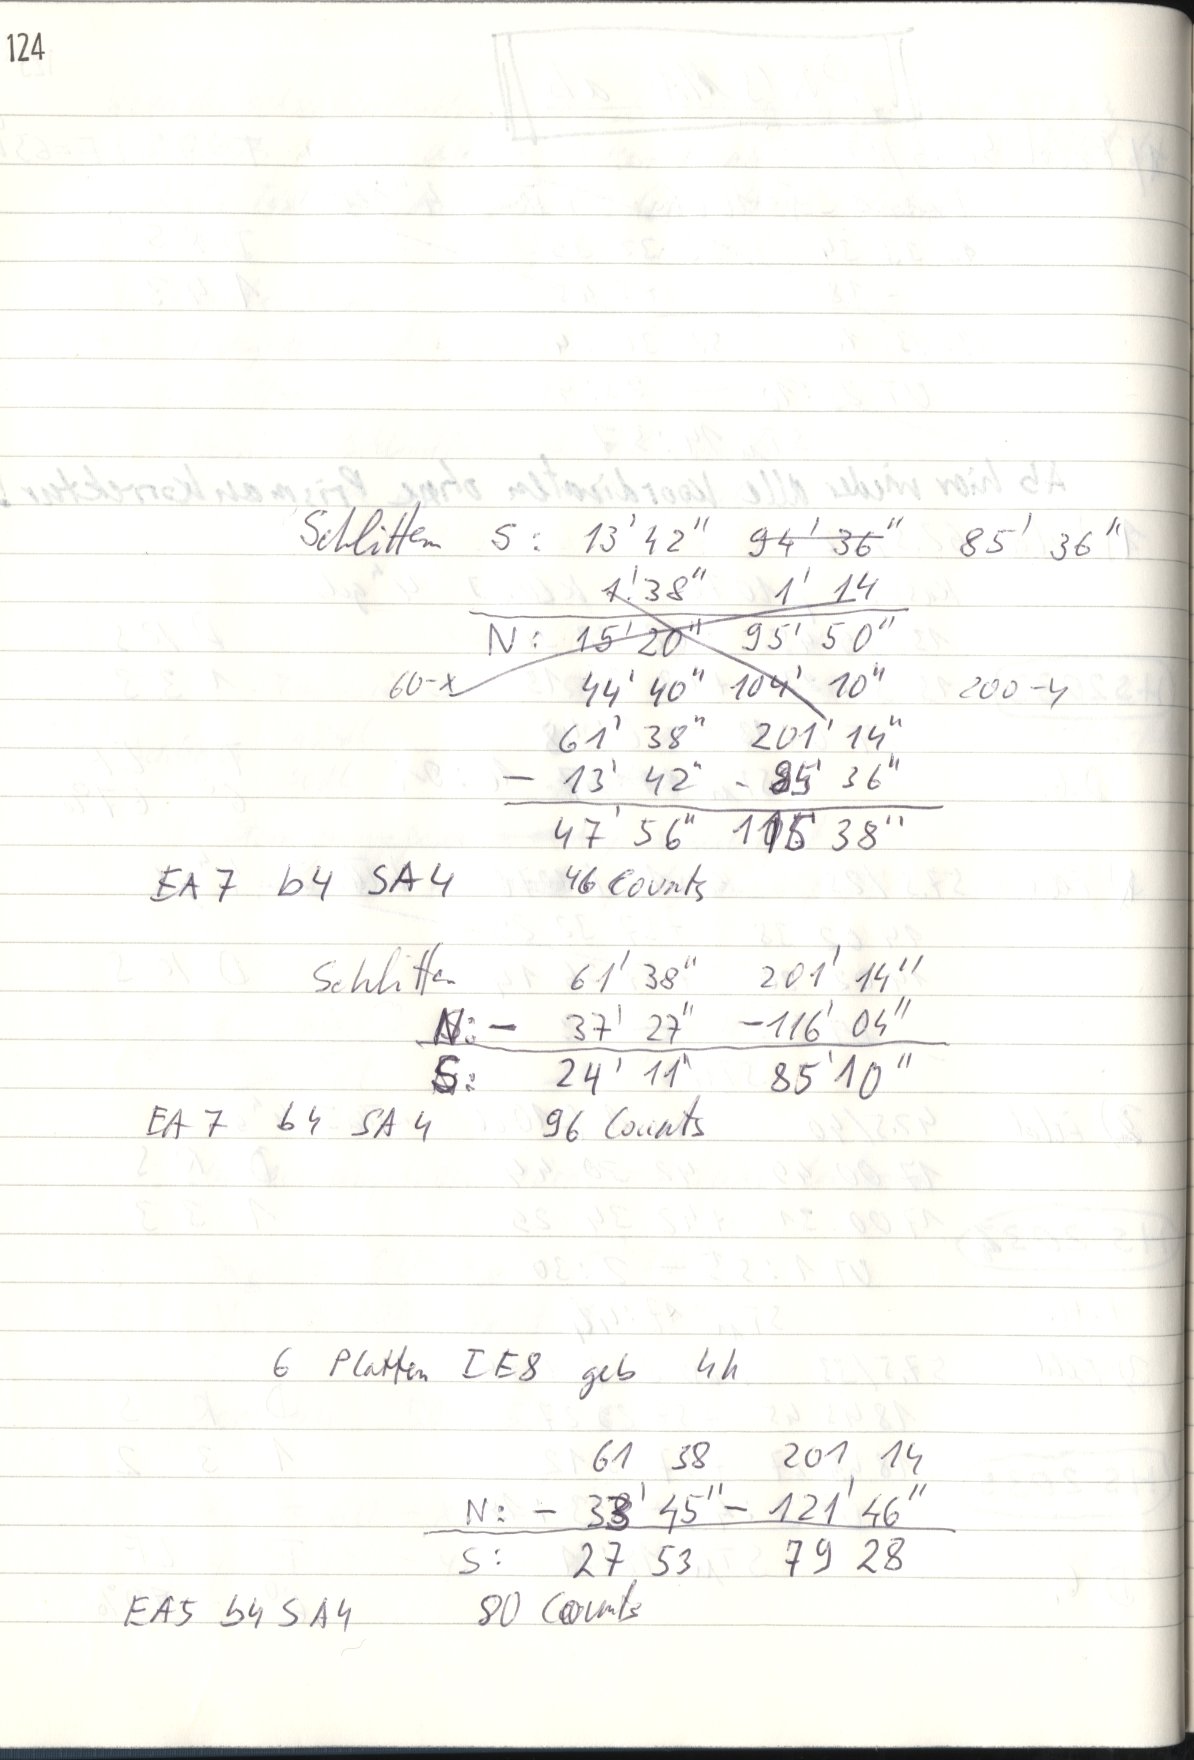 124
Schlitten S: 13' 42" 94' 36" 85' 36"
1' 38" 1' 14
N: 15' 20" 95' 50"
60-x 44' 40" 104' 10" 200-y
61' 38" 201' 14"
- 13' 42" - 85' 36"
47' 56" 115' 38"
EA7 b4 SA4 46 Counts
Schlitten 61' 38" 201' 14"
N: - 37' 27" -116' 04"
S: 24' 11" 85' 10"
EA7 b4 SA4 96 Counts
6 Platten IE8 geb 4h
61 38 201 14
N: - 33' 45" - 121' 46"
S: 27 53 79 28
EA5 b4 SA4 80 Counts